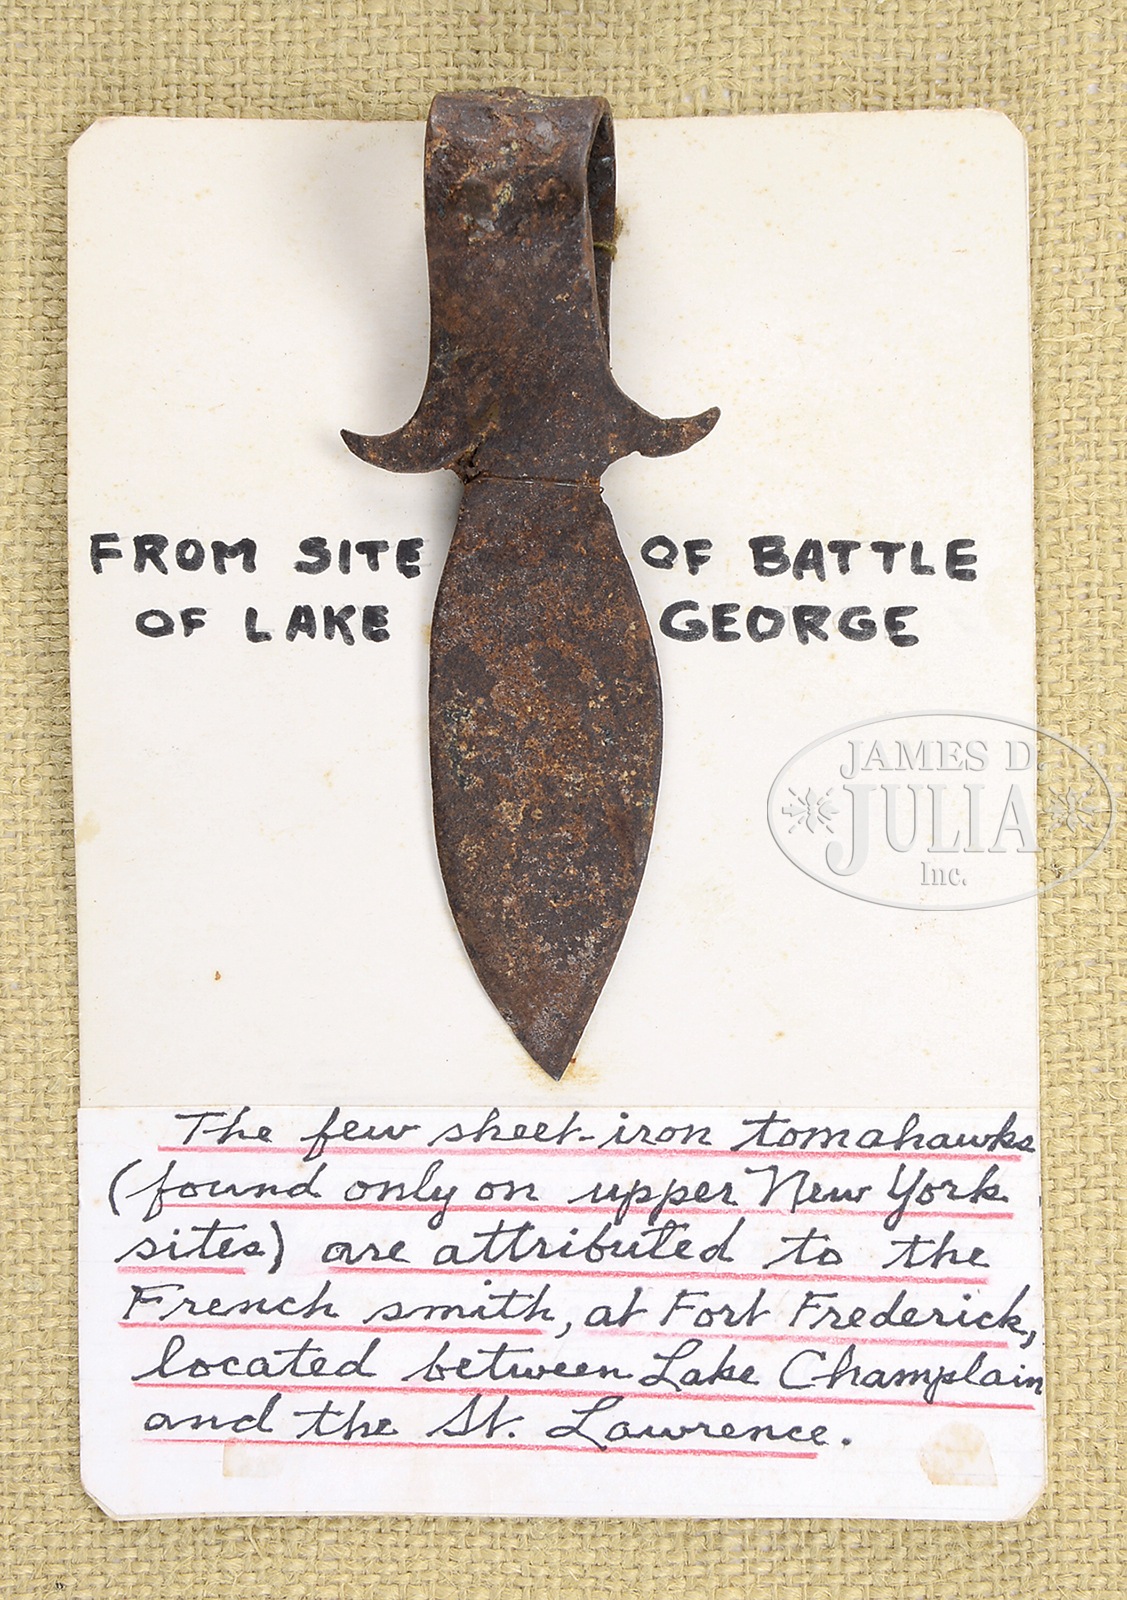 FROM SITE OF BATTLE
OF LAKE GEORGE
JAMES D.
JULIA
Inc.
The few sheet-iron tomahawks
(found only on upper New York
sites) are attributed to the
French smith, at Fort Frederick,
located between Lake Champlain
and the St. Lawrence.